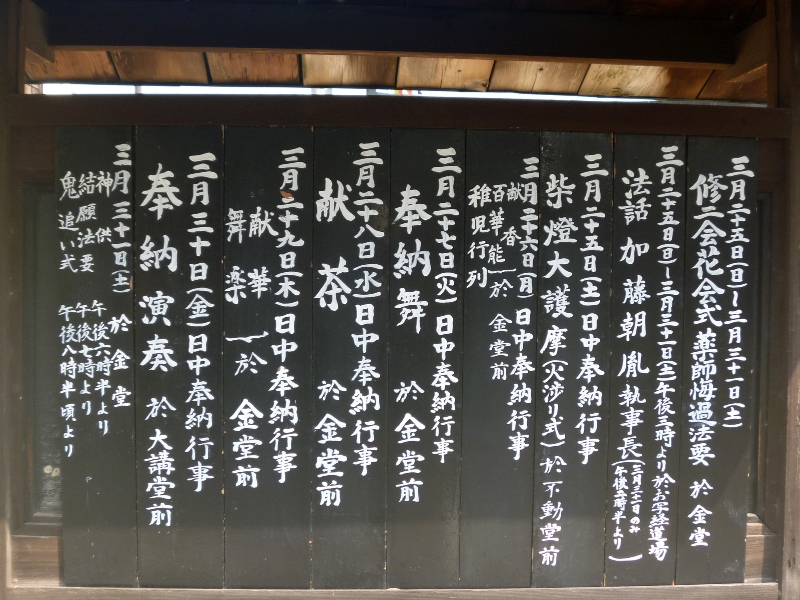 三月二十五日(日)〜三月三十一日(土)
修二会花会式薬師悔過法要 於金堂
三月二十五日(日)〜三月三十一日(土)午後三時より於お写経道場
法話 加藤朝胤執事長(三月三十一日のみ午後二時半より)
三月二十五日(土)日中奉納行事
柴燈大護摩(火渉り式)於不動堂前
三月二十六日(月)日中奉納行事
献香
百華能 於金堂前
稚児行列
三月二十七日(火)日中奉納行事
奉納舞 於金堂前
三月二十八日(水)日中奉納行事
献茶 於金堂前
三月二十九日(木)日中奉納行事
献華
舞楽 於金堂前
三月三十日(金)日中奉納行事
奉納演奏 於大講堂前
三月三十一日(土) 於金堂
神供 午後六時半より
結願法要 午後七時より
鬼追い式 午後八時半頃より